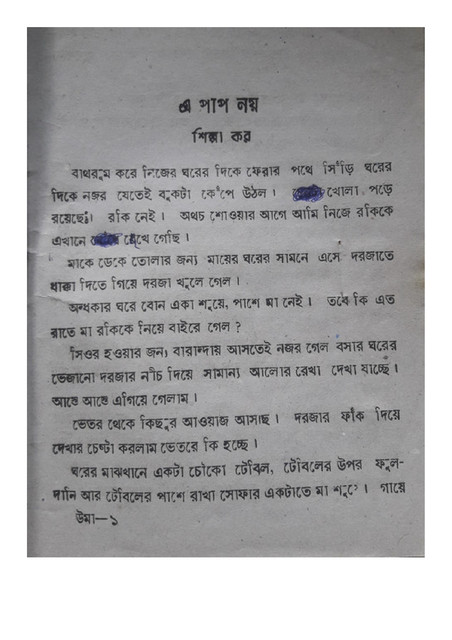 এ পাপ নয়
শিল্পা কর
বাথরুম করে নিজের ঘরের দিকে ফেরার পথে সিঁড়ি ঘরের
দিকে নজর যেতেই বুকটা কেঁপে উঠল। খোলা পড়ে
রয়েছে। রকি নেই। অথচ শোওয়ার আগে আমি নিজে রকিকে
এখানে রেখে গেছি।
মাকে ডেকে তোলার জন্য মায়ের ঘরের সামনে এসে দরজাতে
ধাক্কা দিতে গিয়ে দরজা খুলে গেল।
অন্ধকার ঘরে বোন একা শুয়ে, পাশে মা নেই। তবে কি এত
রাতে মা রকিকে নিয়ে বাইরে গেল?
সিওর হওয়ার জন্য বারান্দায় আসতেই নজর গেল বসার ঘরের
ভেজানো দরজার নীচ দিয়ে সামান্য আলোর রেখা দেখা যাচ্ছে।
আস্তে আস্তে এগিয়ে গেলাম।
ভেতর থেকে কিছুর আওয়াজ আসছে। দরজার ফাঁক দিয়ে
দেখার চেষ্টা করলাম ভেতরে কি হচ্ছে।
ঘরের মাঝখানে একটা চৌকো টেবিল, টেবিলের উপর ফুল-
দানি আর টেবিলের পাশে রাখা সোফার একটাতে মা শুয়ে। গায়ে
উমা—১